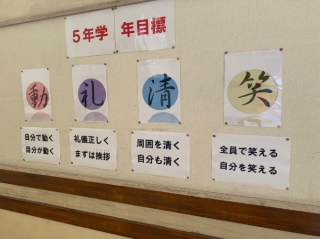 5年学年目標
動
礼
清
笑
自分で動く
自分が動く
礼儀正しく
まずは挨拶
周囲を清く
自分も清く
全員で笑える
自分を笑える